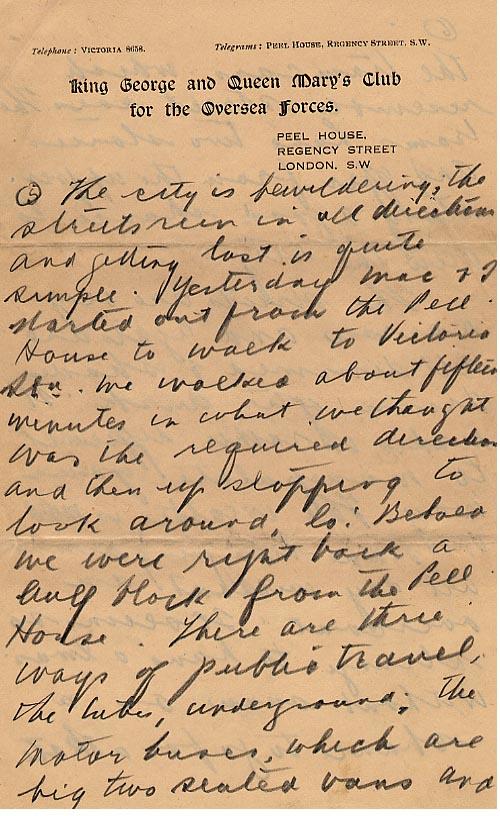 Telephone : VICTORIA 8658.
Telegrams : PEEL HOUSE, REGENCY STREET, S.W.
King George and Queen Mary's Club
for the Oversea Forces.
PEEL HOUSE,
REGENCY STREET
LONDON, S.W
5 The city is bewildering, the
streets run in all directions
and getting lost is quite
simple. Yesterday Mac & I
started out from the Peel
House to walk to Victoria
Stn. We walked about fifteen
minutes in what we thought
was the required direction
and then up stopping to
look around, lo! Behold
we were right back a
half block from the Peel
House. There are three
ways of public travel,
the tubes, underground, the
motor buses, which are
big two seated vans and